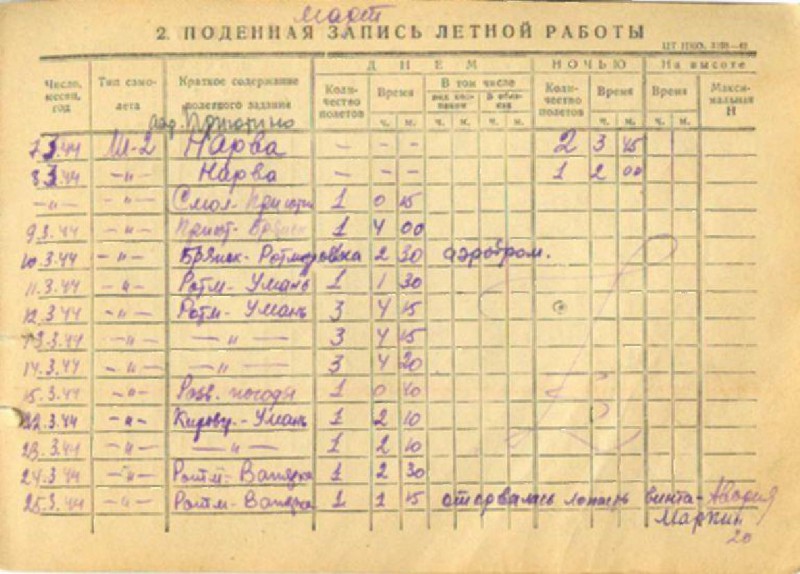 Март
2. ПОДЕННАЯ ЗАПИСЬ ЛЕТНОЙ РАБОТЫ
Число, месяц, год Тип самолета Краткое содержание полетного задания ДНЕМ Количество полетов Время ч. м. В том числе ч. м. ч. м. НОЧЬЮ Количество полетов Время ч. м. На высоте Время ч. м. Максимальная Н
аэр. Приютино
7.3.44 Ш-2 Нарва — — — 2 3 45
8.3.44 —"— Нарва 1 2 00
—"— —"— Смол-Приютин 1 0 15
9.3.44 —"— Приют-Брянск 1 4 00
10.3.44 —"— Брянск-Ротмировка 2 30 аэродром.
11.3.44 —"— Ротм-Умань 1 1 30
12.3.44 —"— Ротм-Умань 3 4 15
13.3.44 —"— —"— 3 4 15
14.3.44 —"— —"— 3 4 20
15.3.44 —"— Разв. погоды 1 0 40
22.3.44 —"— Кирову.-Умань 1 2 10
23.3.44 —"— —"— 1 2 10
24.3.44 —"— Ротм-Вапнярка 1 2 30
25.3.44 —"— Ротм-Вапнярка 1 1 15 оторвалась лопасть винта-Авария
Маркин
20